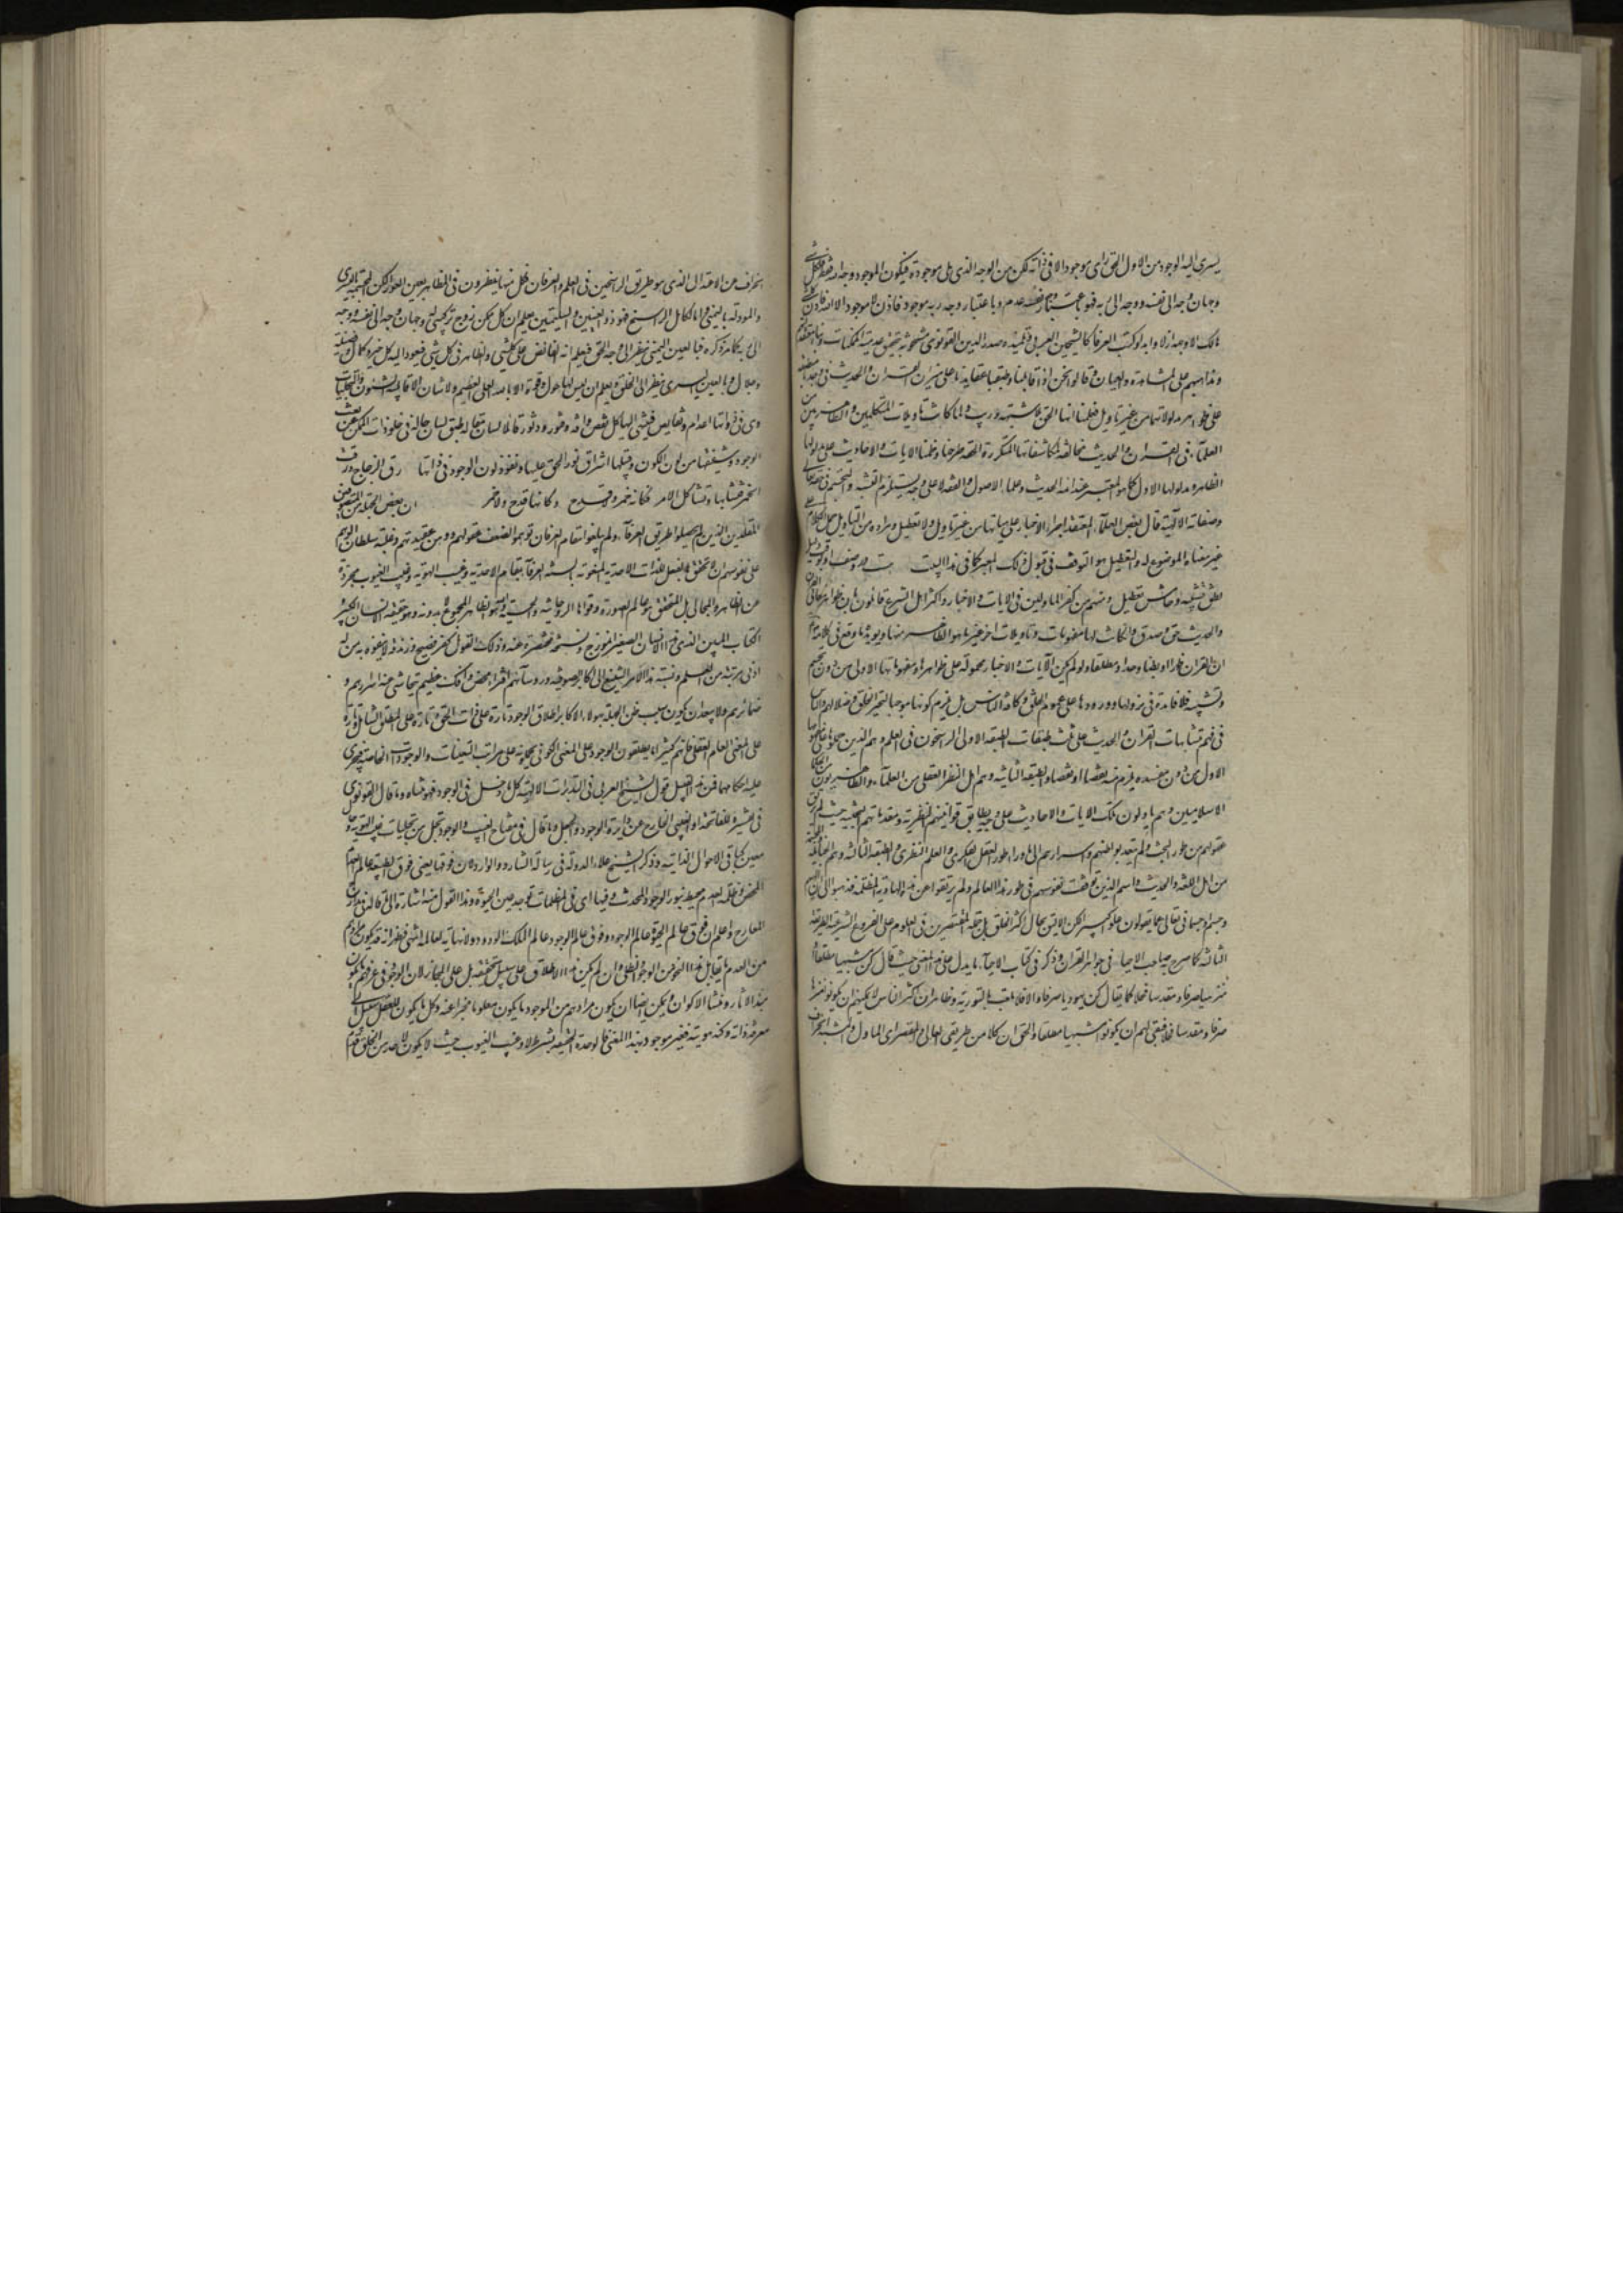 يسرى اليه الوجود من الاول الحق راى موجودا لا فى ذاته لكن من الوجه الذى يلى موجودة فيكون الموجود وجه الله فقط فلكل شئ
وجهان وجه الى نفسه ووجه الى ربه فهو باعتبار نفسه عدم وباعتبار وجه ربه موجود فاذن لا موجود الا الله فاذن كل شئ
هالك الا وجهه ازلا وابدا وكتب العرفا كالشيخين العربى وتلميذه صدر الدين القونوى مشحونة بتحقيق عدمية الممكنات وبناء معتقداتهم
ومذاهبهم على المشاهدة والعيان وقالوا نحن اذا قابلنا وطبقنا عقايدنا على ميزان القران والحديث وجدناها منطبقة
على ظواهر مدلولاتهما من غير تاويل فعلمنا انها الحق بلا شبهة وريب ولما كانت تاويلات المتكلمين والظاهريين من
العلماء فى القران والحديث مخالفة لمكاشفاتنا المتكررة الحقة طرحناها وحملنا الايات والاحاديث على مدلولها
الظاهر ومدلولها الاول كما هو المعتبر عند ائمة الحديث وعلماء الاصول والفقه لا على وجه يستلزم التشبيه والتجسيم فى حقه تعالى
وصفاته الالهية قال بعض العلماء المعتقد اجراء الاخبار على هيئاتها من غير تاويل ولا تعطيل ومراده من التاويل حمل الكلام على
غير معناه الموضوع له والتعطيل هو التوقف فى قبول ذلك المعنى كما فى هذا البيت هست در وصف او بوقت دليل
نطق تشبيه وخامشى تعطيل ومنهم من كفر الماولين فى الايات والاخبار واكثر اهل الشرع قائلون بان ظواهر معانى القران
والحديث حق وصدق وان كانت لها مفهومات وتاويلات اخر غير ما هو الظاهر منها ويويده ما وقع فى كلامه ص
ان للقران ظهرا وبطنا وحدا ومطلعا ولو لم يكن الايات والاخبار محمولة على ظواهرها ومفهوماتها الاولى من دون تجسيم
وتشبيه فلا فائدة فى نزولها وورودها على عموم الخلق وكافة الناس بل يلزم كونها موجبا لتحير الخلق وضلالهم والناس
فى فهم متشابهات القران والحديث على ثلث طبقات الطبقه الاولى الراسخون فى العلم وهم الذين حملوها على مفهومها
الاول من دون مفسده يلزم منه نقصا او نقضا والطبقه الثانيه وهم اهل النظر العقلى من العلماء والظاهريون من الحكماء
الاسلاميين وهم ياولون تلك الايات والاحاديث على وجه يطابق قوانينهم النظرية ومقدماتهم البحثية حيث لم يرتق
عقولهم من طور البحث ولم يتعد بواطنهم واسرارهم الى ما وراء طور العقل الفكرى والعلم النظرى والطبقه الثالثه وهم الحنابلة
من اهل اللغه والحديث واسم الذين توقفت نفوسهم فى طور هذا العالم ولم يرتقوا عن هذه الهاوية المظلمة فذهبوا الى ان الههم
جسم او جسمانى تعالى عما يقولون علوا كبيرا لكن الاليق بحال اكثر الخلق بل جملة المقتصرين فى العلوم على الفروع الشرعية الطريقة
الثالثه كما صرح به صاحب الاحياء فى جواهر القران وذكر فى كتاب الاحياء ما يدل على هذا المعنى حيث قال كن مشبها مطلقا او
منزها صرفا ومقدسا فحلا كما يقال كن يهوديا صرفا والا فلا تلعب بالتورية وظاهر ان اكثر الناس لا يمكنهم ان يكونوا منزها
صرفا ومقدسا فحلا فبقى لهم ان يكونوا مشبها مطلقا والحق ان كلا من طريقى الغالى والمقصر اى الماول والمشبه انحراف
انحراف عن الاعتدال الذى هو طريق الراسخين فى العلم والعرفان فكل منهما ينظرون فى المظاهر بعين العوراء لكن المجسمة باليسرى
والمؤولة باليمنى واما الكامل الراسخ فهو ذو العينين السليمتين يعلم ان كل ممكن زوج تركيبى له وجهان وجه الى نفسه ووجه
الى ربه كما مر ذكره فبالعين اليمنى ينظر الى وجه الحق فيعلم انه الفائض على كل شئ والظاهر فى كل شئ فيعود اليه كل خير وكمال وفضيلة
وجمال وبالعين اليسرى ينظر الى الخلق ويعلم ان ليس لها حول وقوة الا بالله العلى العظيم ولا شان الا قابلية الشئون والتجليات
وهى فى ذواتها اعدام ونقايص فينتهى اليها كل نقص وافة وفتور ودثور قائلا لسان مقاله طبق لسان حاله فى خلو ذات الممكن عن نعت
الوجود وتشبثها من لون الكون وقبلها اشراق نور الحق عليها ونفوذ لون الوجود فى ذاتها رق الزجاج ورقت
الخمر فتشابها وتشاكل الامر فكانه خمر ولا قدح وكانها قدح ولا خمر ان بعض الجهلة من المتصوفين
المقلدين الذين لم يحصلوا طريق العرفاء ولم يبلغوا مقام العرفان توهموا لضعف عقولهم ووهن عقيدتهم وغلبة سلطان الوهم
على نفوسهم ان لا تحقق بالفعل للذات الاحدية المنعوته بالسنة العرفاء بمقام الاحدية وغيب الهوية وغيب الغيوب مجردة
عن المظاهر والمجالى بل المتحقق هو عالم الصورة وقواها الروحانيه والحسية والله هو الظاهر المجموع لا بدونه وهو حقيقة الانسان الكبير
والكتاب المبين الذى هذا الانسان الصغير انموزج ونسخة مختصرة عنه وذلك القول كفر فضيح وزندقة لا يتفوه به من له
ادنى مرتبة من العلم ونسبة هذا الامر الشنيع الى اكابر الصوفيه ورؤسائهم افتراء محض وافك عظيم يتحاشى عنه اسرارهم و
ضمائرهم ولا يبعد ان يكون سبب ظن الجهلة بهولاء الاكابر اطلاق الوجود تارة على ذات الحق وتارة على المطلق الشامل وتارة
على المعنى العام العقلى فانهم كثيرا ما يطلقون الوجود على المعنى الكونى فيحملونه على مراتب التعينات والوجودات الخاصة فيجرى
عليه احكامها فمن هذا القبيل قول الشيخ العربى فى التدبيرات الالهية كل ما دخل فى الوجود فهو متناه وما قال القونوى
فى تفسيره للفاتحة او الغيبى الخارج عن دايرة الوجود والجعل وما قال فى مفتاح الغيب والوجود تجلى من تجليات غيب الهوية وحال
معين كباقى الاحوال الذاتيه وذكر الشيخ علاء الدوله فى رسالة الشارد والوارد لان فوقها يعنى فوق الطبيعة عالم العدم
المحض وظلمة العدم محيط بنور الوجود المحدث وفيها اى فى الظلمات توجد عين الحيوة وهذا القول منه اشارة الى ما قال فى مدارج
المعارج واعلم ان فوق عالم الحيوة عالم الوجود وفوق عالم الوجود عالم الملك الودود ولا نهاية لعالمه انتهى فظهر انه قد يكون مرادهم
من العدم ما يقابل هذا النحو من الوجود الظلى وان لم يكن هذا الاطلاق على سبيل الحقيقة بل على المجاز لان الوجود فى عرفهم ما يكون
مبدء الاثار ومنشا الاكوان ويمكن ايضا ان يكون مرادهم من الموجود ما يكون معلوما مخبرا عنه وكل ما يكون للعقل سبيل الى
معرفة ذاته وكنه هويته فغير موجود بهذا المعنى فالوحدة الحقيقية بشرط لا وغيب الغيوب حيث لا يكون لاحد من الخلق قدم